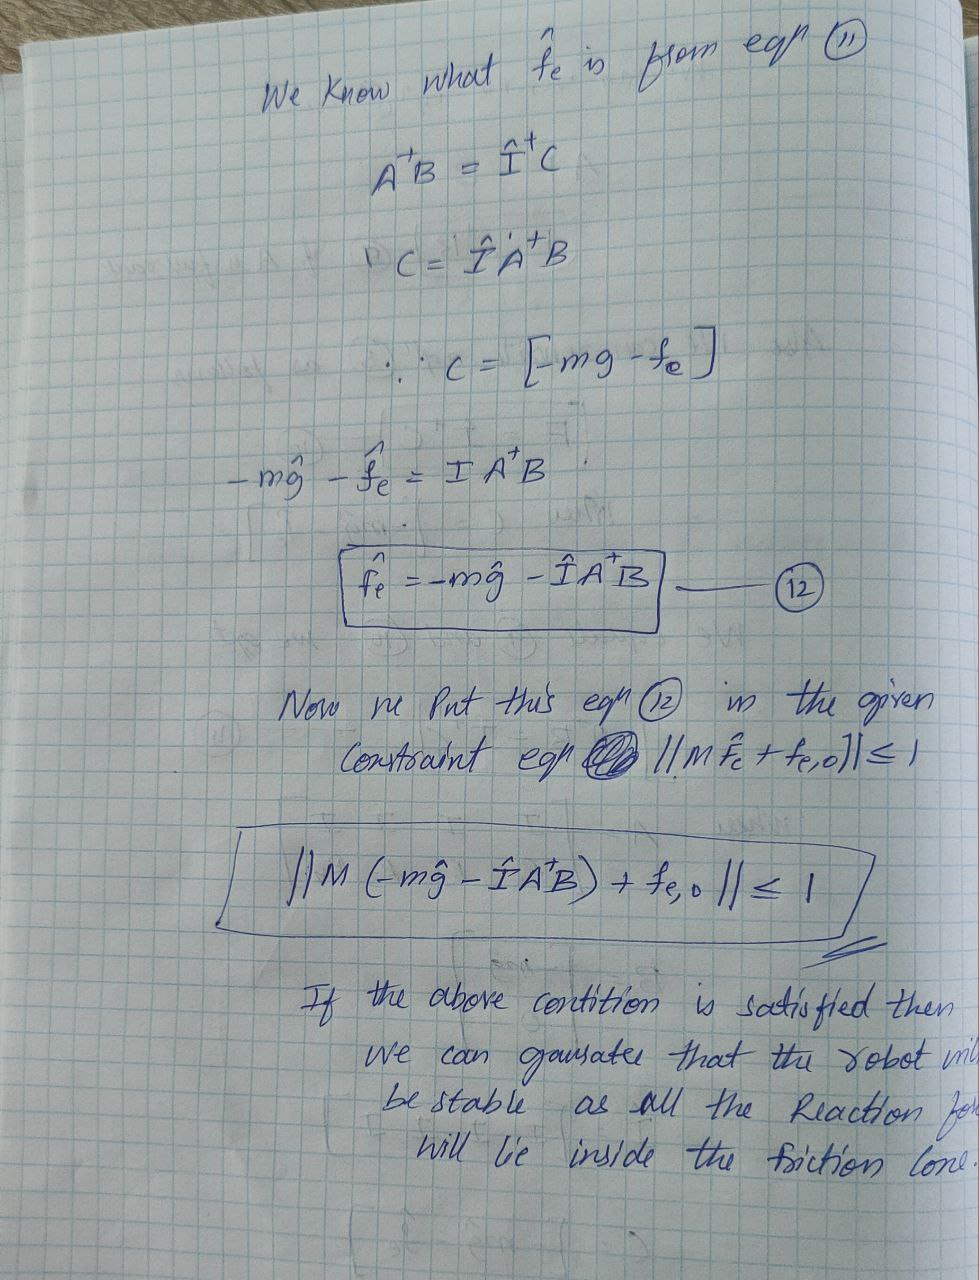 We Know what f̂e is from eqn ⑪
A⁺B = Î⁺C
C = Î A⁺B
∵ C = [-mg - fe]
-mĝ - f̂e = I A⁺B
f̂e = -mĝ - Î A⁺B — ⑫
Now we Put this eqn ⑫ in the given
Constraint eqn ||M f̂e + fe,o|| ≤ 1
||M (-mĝ - Î A⁺B) + fe,o || ≤ 1
If the above contition is satisfied then
we can gausatee that the robot
be stable as all the Reaction
will lie inside the friction Cone.